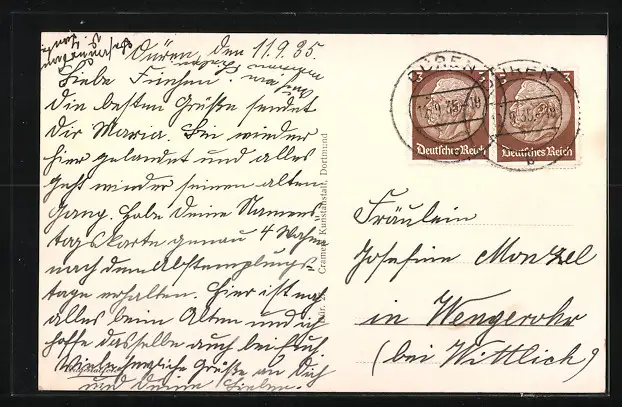 Düren, den 11.9.35.
Liebe Finchen
Die besten Grüße sendet
Dir Maria. Bin wieder
hier gelandet und alles
geht wieder seinen alten
Gang. Habe Deine Namens-
tagskarte genau 4 Wochen
nach dem Abstemplungs-
tage erhalten. Hier ist noch
alles beim Alten und ich
hoffe dasselbe auch bei Euch.
Viele Grüße an Dich
und Deine Lieben.
Cramers Kunstanstalt, Dortmund
DÜREN
DÜREN
3
3
Deutsches Reich
Deutsches Reich
Fräulein
Josefine Monzel
in Wengerohr
(bei Wittlich)